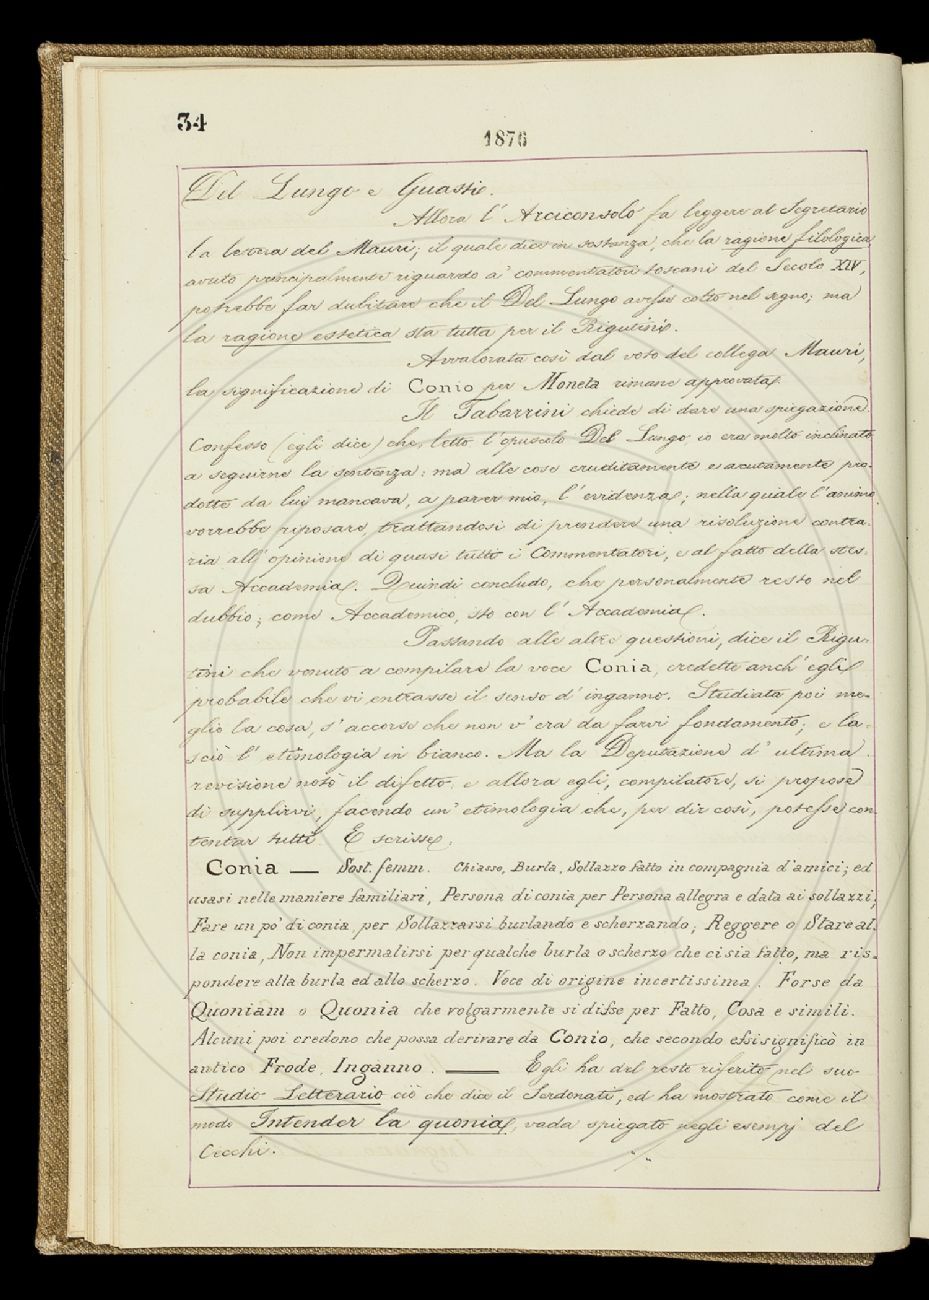 34
1876
Del Lungo e Guasti.
Allora l' Arciconsolo fa leggere al Segretario
la lettera del Mauri; il quale dice in sostanza, che la ragione filologica,
avuto principalmente riguardo a' commentatori toscani del Secolo XIV,
potrebbe far dubitare che il Del Lungo avesse colto nel segno; ma
la ragione estetica sta tutta per il Rigutini.
Avvalorata così dal voto del collega Mauri,
la significazione di Conio per Moneta rimane approvata.
Il Tabarrini chiede di dare una spiegazione.
Confesso (egli dice) che, letto l'opuscolo Del Lungo io era molto inclinato
a seguirne la sentenza: ma alle cose eruditamente e acutamente pro-
dotte da lui mancava, a parer mio, l' evidenza; nella quale l'animo
vorrebbe riposare, trattandosi di prendere una risoluzione contra-
ria all' opinione di quasi tutti i Commentatori, e al fatto della stes-
sa Accademia. Quindi concludo, che personalmente resto nel
dubbio; come Accademico, sto con l' Accademia.
Passando alle altre questioni, dice il Rigu-
tini che venuto a compilare la voce Conia, credette anch' egli
probabile che vi entrasse il senso d' inganno. Studiata poi me-
glio la cosa, s' accorse che non v' era da farvi fondamento; e la-
sciò l' etimologia in bianco. Ma la Deputazione d' ultima
revisione notò il difetto, e allora egli, compilatore, si propose
di supplirvi, facendo un' etimologia che, per dir così, potesse con
tentar tutti. E scrisse:
Conia — Sost. femm. Chiasso, Burla, Sollazzo fatto in compagnia d'amici; ed
usasi nelle maniere familiari, Persona di conia per Persona allegra e data ai sollazzi;
Fare un pò di conia, per Sollazzarsi burlando e scherzando; Reggere o Stare al-
la conia, Non impermalirsi per qualche burla o scherzo che ci sia fatto, ma ris-
pondere alla burla ed allo scherzo. Voce di origine incertissima. Forse da
Quoniam o Quonia che volgarmente si disse per Fatto, Cosa e simili.
Alcuni poi credono che possa derivare da Conio, che secondo essi significò in
antico Frode, Inganno. — Egli ha del resto riferito nel suo
Studio Letterario ciò che dice il Serdonati, ed ha mostrato come il
modo Intender la quonia, vada spiegato negli esempj del
Cecchi.